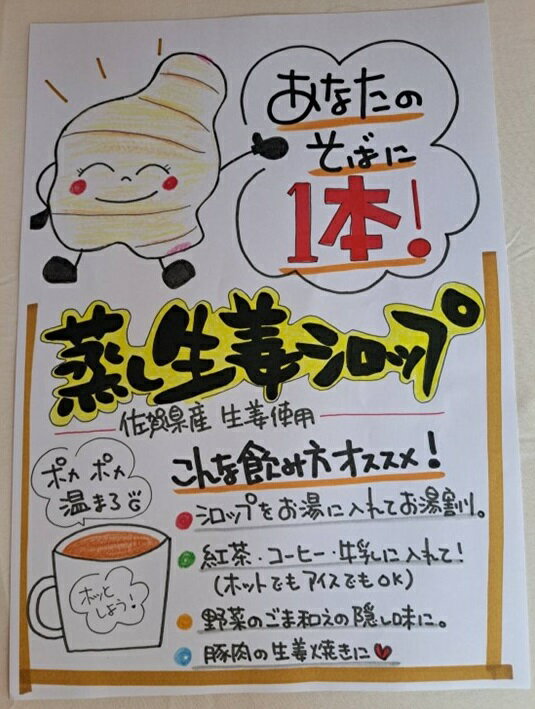 あなたの
そばに
1本!
蒸し生姜シロップ
佐賀県産 生姜使用
こんな飲み方オススメ!
ポカポカ
温まる
シロップをお湯に入れてお湯割り。
紅茶・コーヒー・牛乳に入れて!
(ホットでもアイスでもOK)
野菜のごま和えの隠し味に。
豚肉の生姜焼きに
ホッと
しよう!